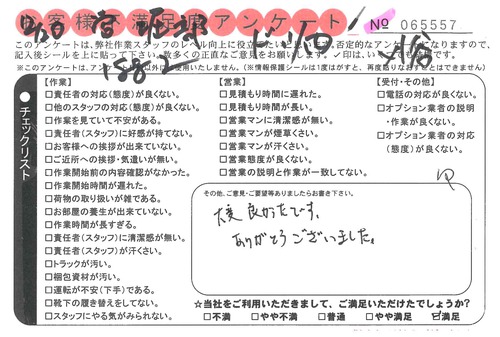 お客様不満足度アンケート
No 065557
このアンケートは、弊社作業スタッフのレベル向上に役立てたいと思います。否定的なアンケートになりますので、
記入後シールを上に貼って下さい。数多くの正直なご意見をお願いします。✓印は、いくつでも結構です。
※このアンケートは、アンケート以外に使用いたしません。(※情報保護シールは1度はがすと、再度貼りなおすことはできません)
チェックリスト
【作業】
□責任者の対応(態度)が良くない。
□他のスタッフの対応(態度)が良くない。
□作業を見ていて不安がある。
□責任者(スタッフ)に好感が持てない。
□お客様への挨拶が出来ていない。
□ご近所への挨拶・気遣いが無い。
□作業開始前の内容確認がなかった。
□作業開始時間が遅れた。
□荷物の取り扱いが雑である。
□お部屋の養生が出来ていない。
□作業時間が長すぎる。
□責任者(スタッフ)に清潔感が無い。
□責任者(スタッフ)が汗くさい。
□トラックが汚い。
□梱包資材が汚い。
□運転が不安(下手)である。
□靴下の履き替えをしてない。
□スタッフにやる気がみられない。
【営業】
□見積もり時間に遅れた。
□見積もり時間が長い。
□営業マンに清潔感が無い。
□営業マンが煙草くさい。
□営業マンが汗くさい。
□営業態度が良くない。
□営業の説明と作業が一致してない。
【受付・その他】
□電話の対応が良くない。
□オプション業者の説明
・作業が良くない。
□オプション業者の対応
(態度)が良くない。
その他、ご意見・ご要望等ありましたらお書き下さい。
大変良かったです。
ありがとうございました。
☆当社をご利用いただきまして、ご満足いただけたでしょうか?
□不満 □やや不満 □普通 □やや満足 ☑満足